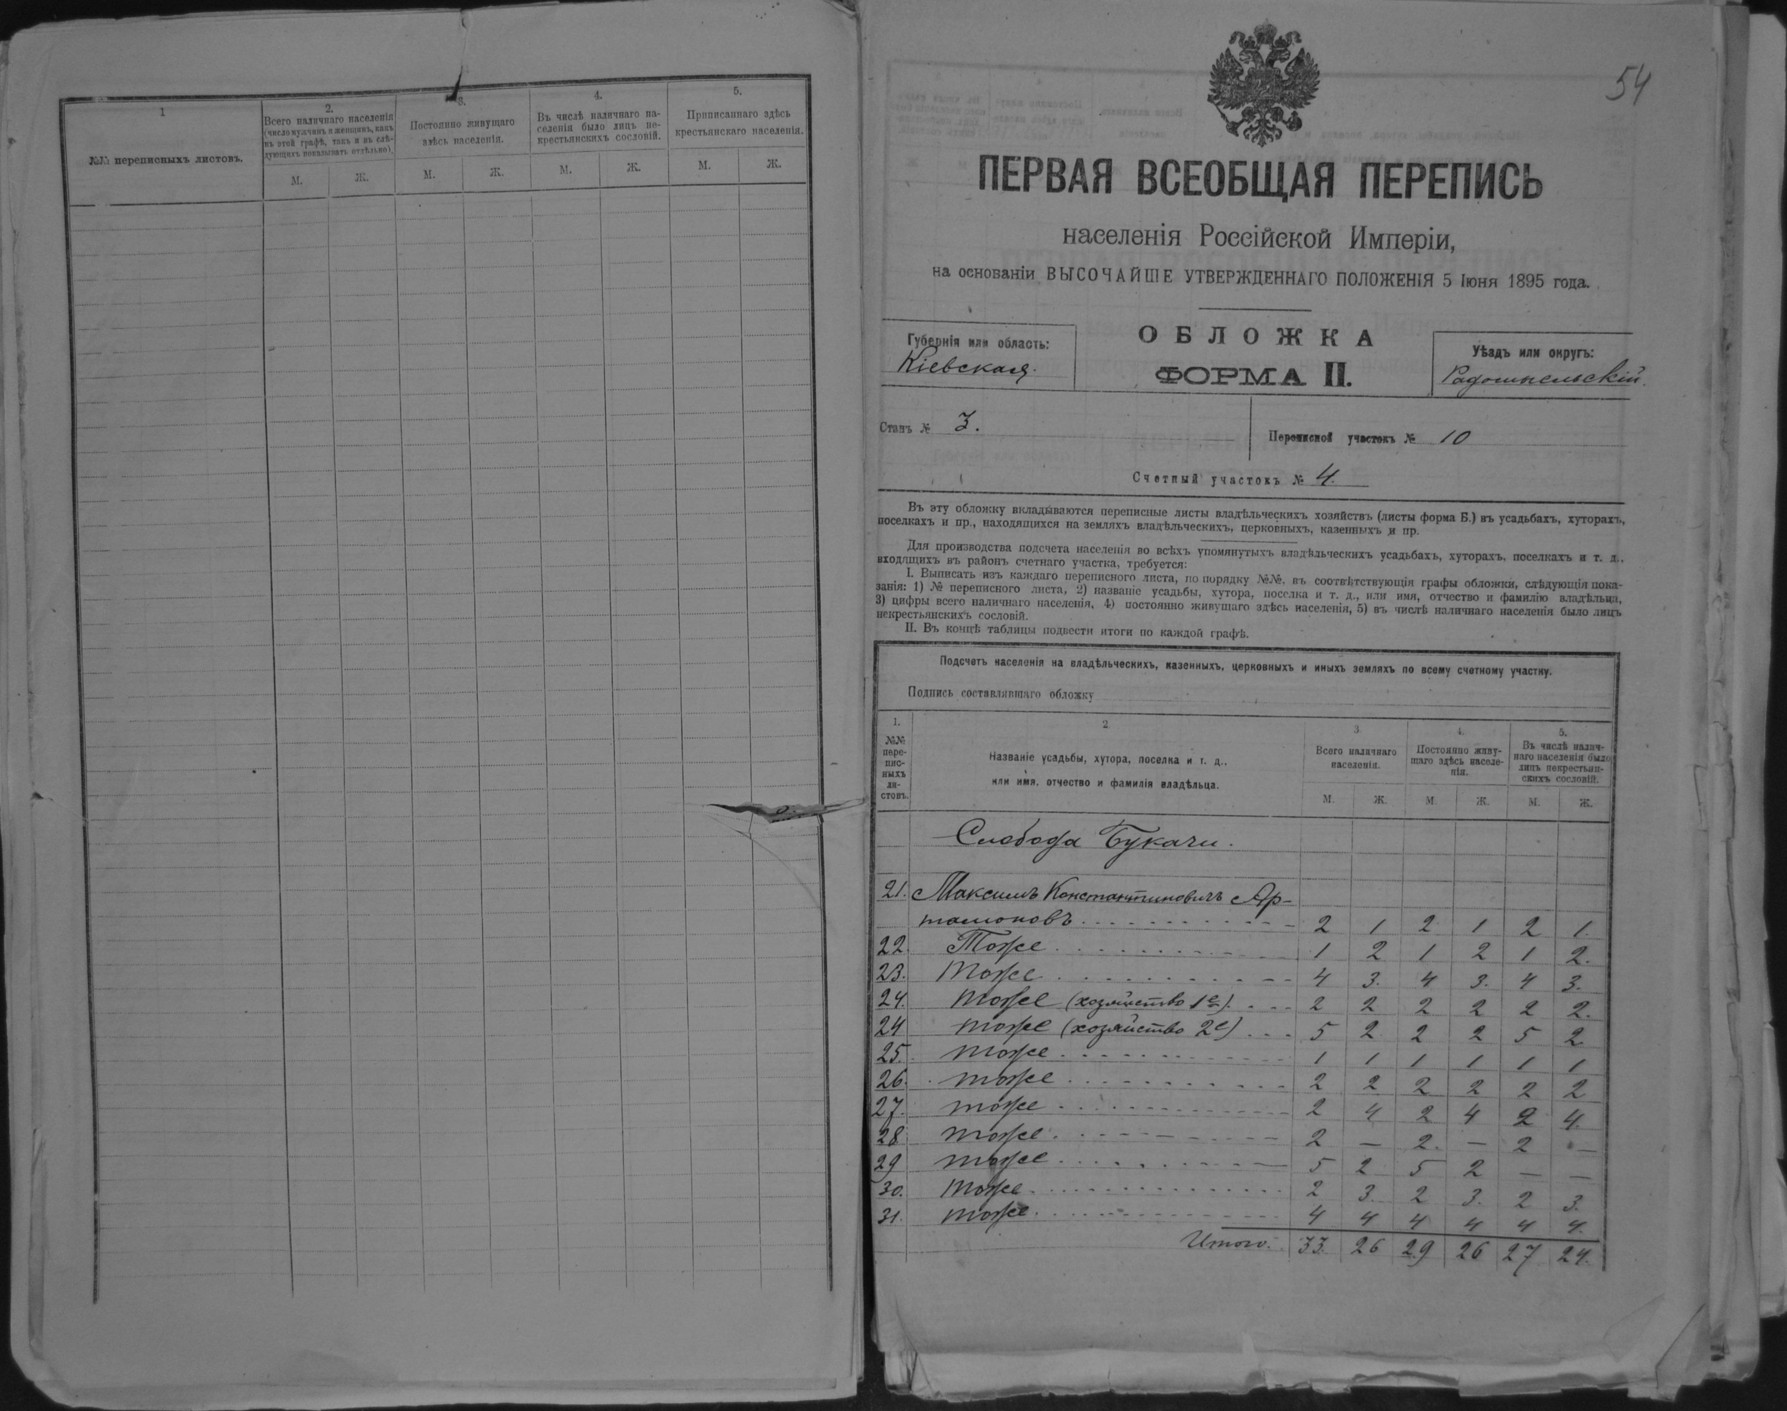 1
№№ переписныхъ листовъ.
2.
Всего наличнаго населенія
(число мужчинъ и женщинъ, какъ
въ этой графѣ, такъ и въ слѣ-
дующихъ показывать отдѣльно).
3.
Постоянно живущаго
здѣсь населенія.
4.
Въ числѣ наличнаго на-
селенія было лицъ не-
крестьянскихъ сословій.
5.
Приписаннаго здѣсь
крестьянскаго населенія.
М. Ж. М. Ж. М. Ж. М. Ж.
54
ПЕРВАЯ ВСЕОБЩАЯ ПЕРЕПИСЬ
населенія Россійской Имперіи,
на основаніи ВЫСОЧАЙШЕ УТВЕРЖДЕННАГО ПОЛОЖЕНІЯ 5 Іюня 1895 года.
Губернія или область:
Кіевская.
ОБЛОЖКА
ФОРМА II.
Уѣздъ или округъ:
Радомысльскій.
Станъ № 3.
Переписной участокъ № 10
Счетный участокъ № 4.
Въ эту обложку вкладываются переписные листы владѣльческихъ хозяйствъ (листы форма Б.) въ усадьбахъ, хуторахъ,
поселкахъ и пр., находящихся на земляхъ владѣльческихъ, церковныхъ, казенныхъ и пр.
Для производства подсчета населенія во всѣхъ упомянутыхъ владѣльческихъ усадьбахъ, хуторахъ, поселкахъ и т. д.,
входящихъ въ районъ счетнаго участка, требуется:
I. Выписать изъ каждаго переписного листа, по порядку №№, въ соотвѣтствующія графы обложки, слѣдующія пока-
занія: 1) № переписного листа, 2) названіе усадьбы, хутора, поселка и т. д., или имя, отчество и фамилію владѣльца,
3) цифры всего наличнаго населенія, 4) постоянно живущаго здѣсь населенія, 5) въ числѣ наличнаго населенія было лицъ
некрестьянскихъ сословій.
II. Въ концѣ таблицы подвести итоги по каждой графѣ.
Подсчетъ населенія на владѣльческихъ, казенныхъ, церковныхъ и иныхъ земляхъ по всему счетному участку.
Подпись составлявшаго обложку
1.
№№
пере-
пис-
ныхъ
ли-
стовъ.
2
Названіе усадьбы, хутора, поселка и т. д.,
или имя, отчество и фамилія владѣльца.
3
Всего наличнаго
населенія.
4.
Постоянно живу-
щаго здѣсь населе-
нія.
5.
Въ числѣ налич-
наго населенія было
лицъ некрестьян-
скихъ сословій.
М. Ж. М. Ж. М. Ж.
Слобода Букачи.
21. Максимъ Константиновичъ Ар-
тамоновъ 2 1 2 1 2 1
22 Тоже 1 2 1 2 1 2.
23. Тоже 4 3. 4 3. 4 3.
24. тоже (хозяйство 1е). 2 2 2 2 2 2.
24 тоже (хозяйство 2е) 5 2 2 2 5 2
25. тоже 1 1 1 1 1 1
26. тоже 2 2 2 2 2 2
27. тоже 2 4 2 4 2 4.
28 тоже 2 — 2. — 2 —
29 тоже 5 2 5 2 — —
30. тоже 2 3. 2 3. 2 3.
31. тоже 4 4 4 4 4 4.
Итого. 33 26 29 26 27 24.